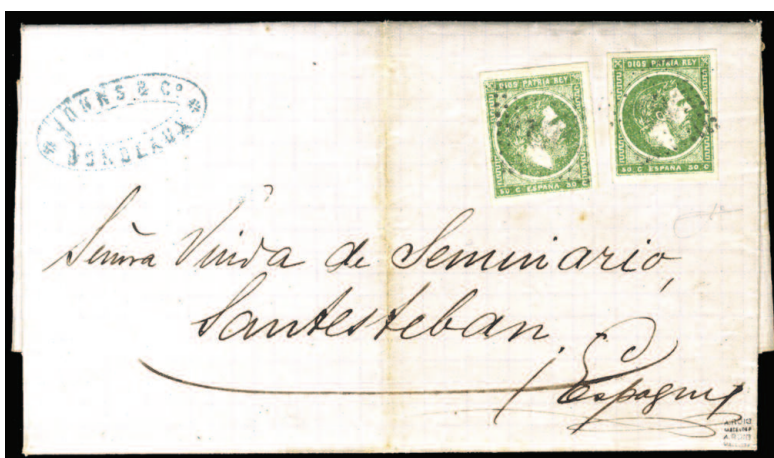 JOHNS & Co
BORDEAUX
DIOS PATRIA REY
50 C ESPAÑA 50 C
DIOS PATRIA REY
50 C ESPAÑA 50 C
Señora Viuda de Seminario,
Santesteban.
Espagne